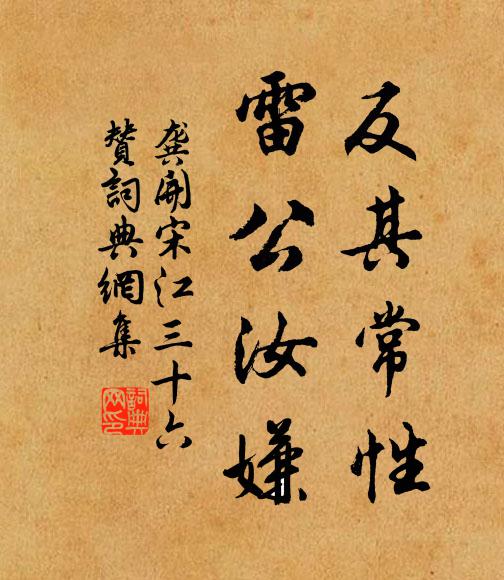 反其常性
雷公汝嫌
龚開宋江三十六
贊詞典網集
詞典網印